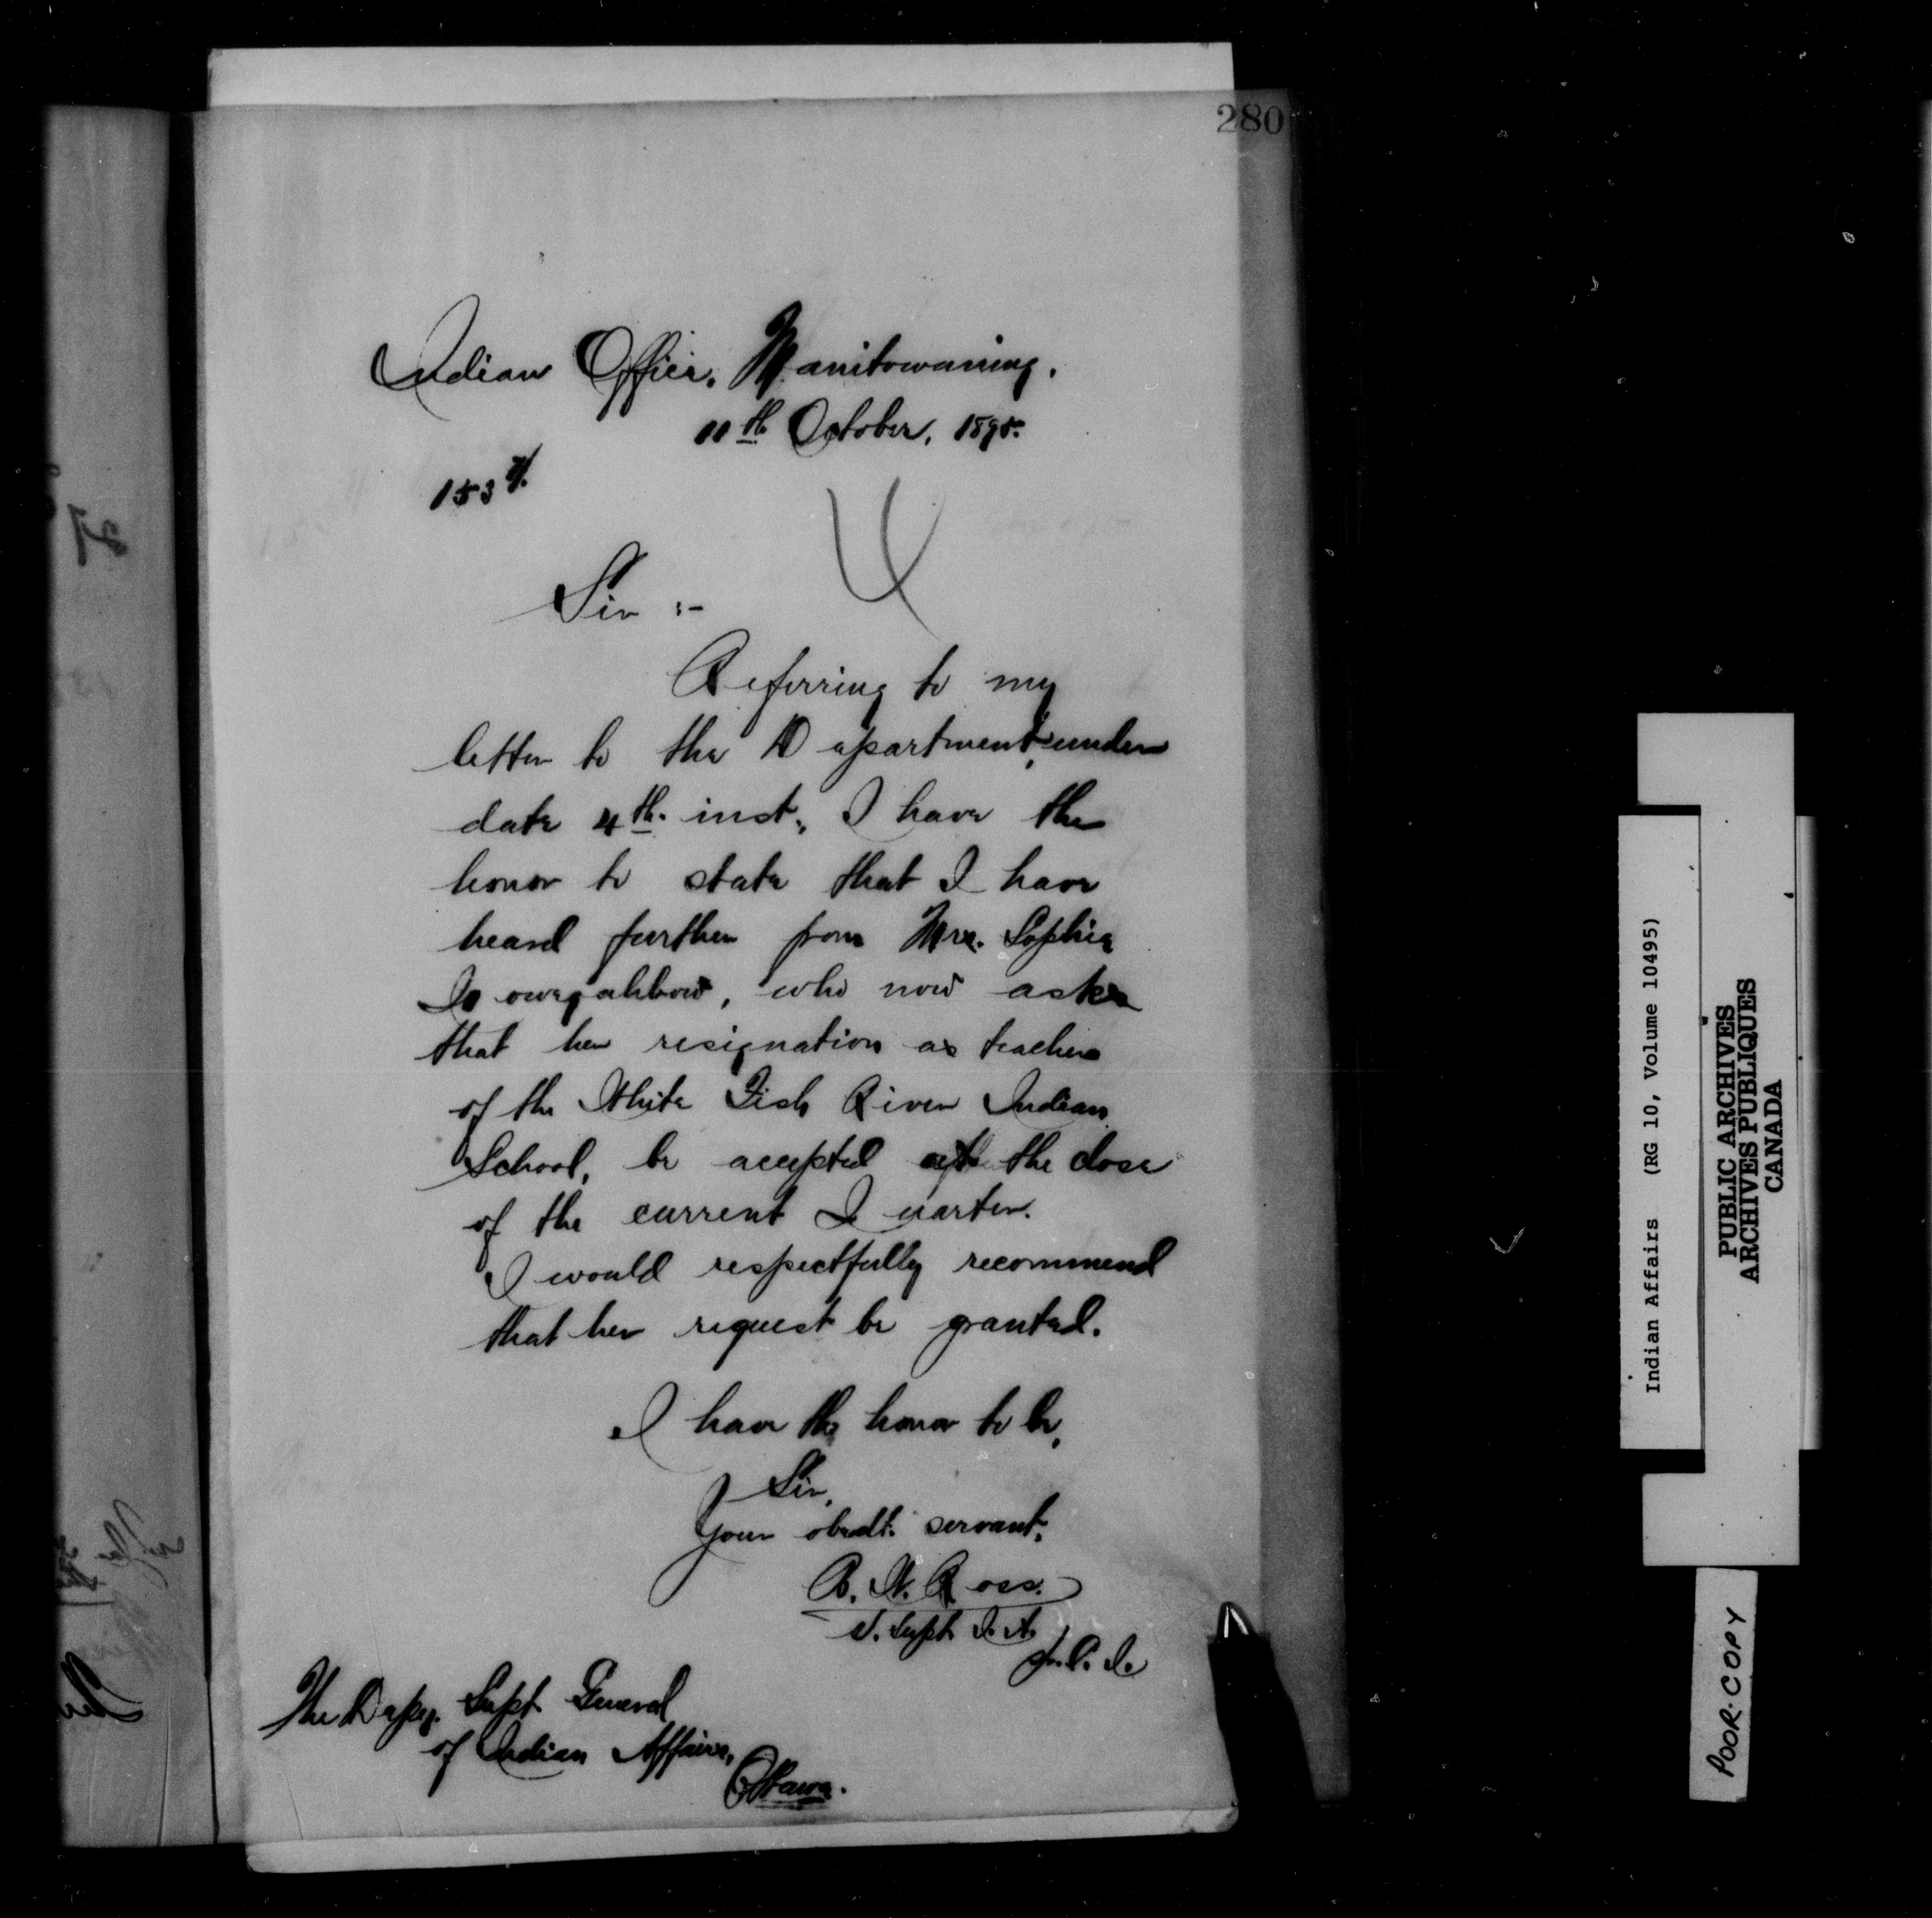 280
Indian Office, Manitowaning.
11th October, 1895.
153
Sir :-
Referring to my
letter to the Department, under
date 4th. inst., I have the
honor to state that I have
heard further from Mrs. Sophia
, who now asks
that her resignation as teacher
of the White Fish River Indian
School, be accepted at the close
of the current Quarter.
I would respectfully recommend
that her request be granted.
I have the honor to be,
Sir,
Your obedt. servant,
B. W. Ross.
V. Supt. I. A.
The Depy. Supt. General
of Indian Affairs,
Ottawa.
Indian Affairs (RG 10, Volume 10495)
PUBLIC ARCHIVES
ARCHIVES PUBLIQUES
CANADA
POOR·COPY